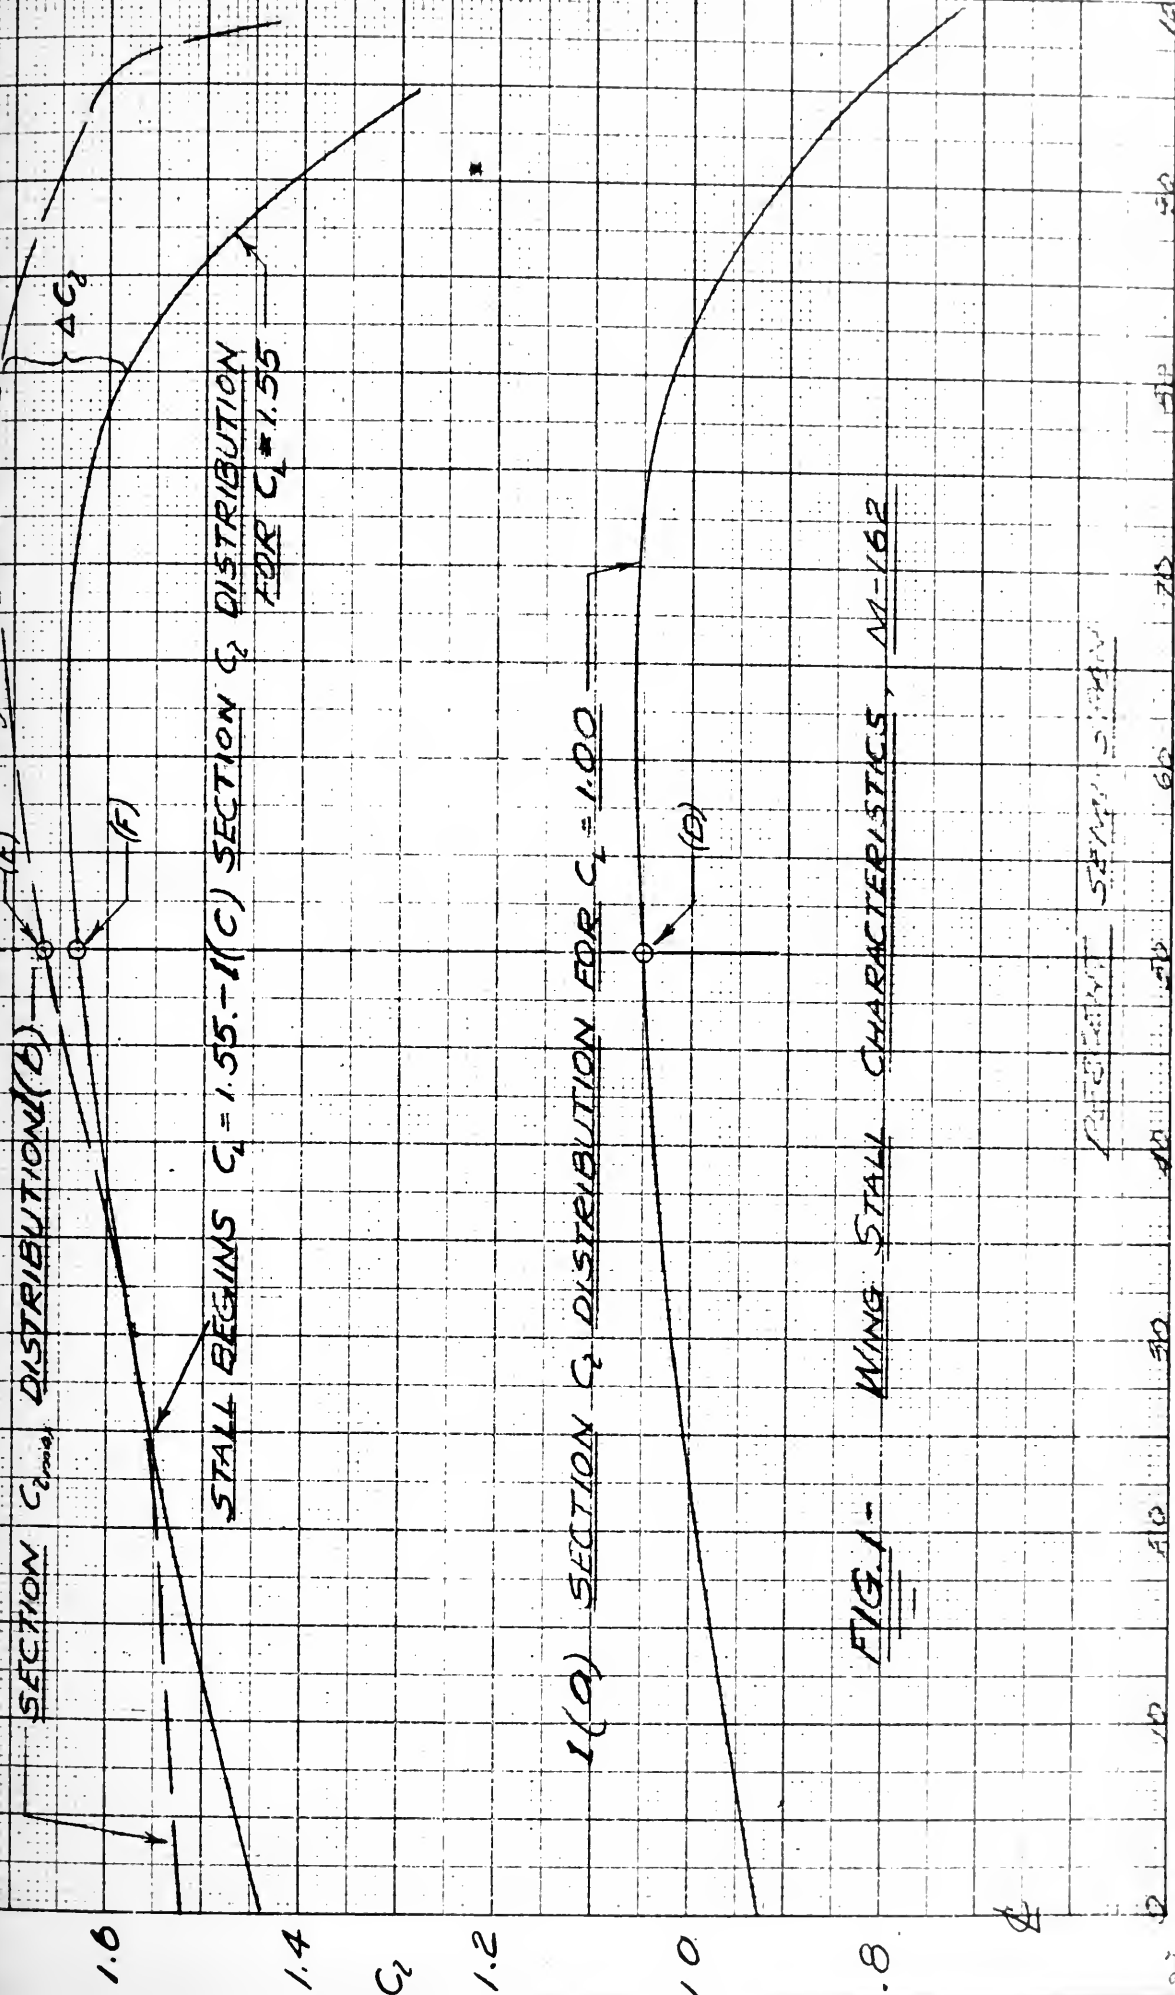 SECTION C₂max DISTRIBUTION 1(b)
(F)
ΔC₂
STALL BEGINS C_L = 1.55.-1(C) SECTION C₂ DISTRIBUTION
FOR C_L = 1.55
1(a) SECTION C₂ DISTRIBUTION FOR C_L = 1.00
(D)
FIG. 1- WING STALL CHARACTERISTICS, M-162
1.6
1.4
C₂
1.2
1.0
.8
℄
0 10 20 30 40 50 60 70 80 90
PERCENT SEMI-SPAN